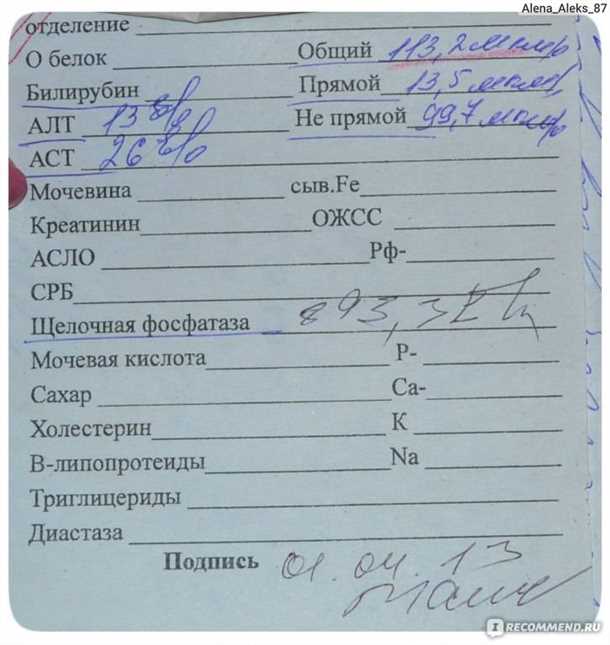 Alena_Aleks_87
отделение
О белок Общий 113,2 мкмл
Билирубин Прямой 13,5 мкмл
АЛТ 13 Не прямой 99,7 мкмл
АСТ 26
Мочевина сыв.Fe
Креатинин ОЖСС
АСЛО Рф-
СРБ
Щелочная фосфатаза 893,3
Мочевая кислота Р-
Сахар Са-
Холестерин К
В-липопротеиды Na
Триглицериды
Диастаза
Подпись 01.04.13
I RECOMMEND.RU